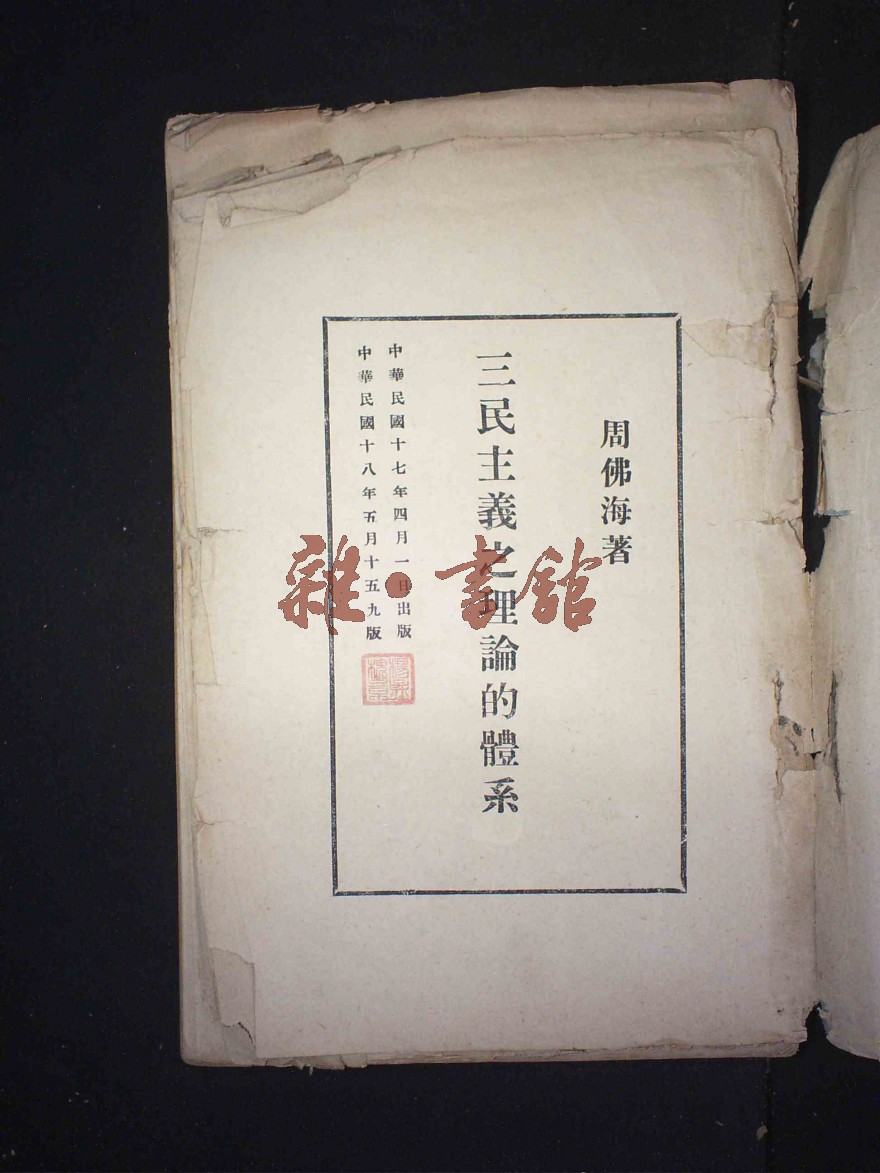 周佛海著
三民主義之理論的體系
中華民國十七年四月一日出版
中華民國十八年五月十五九版
雜·書館